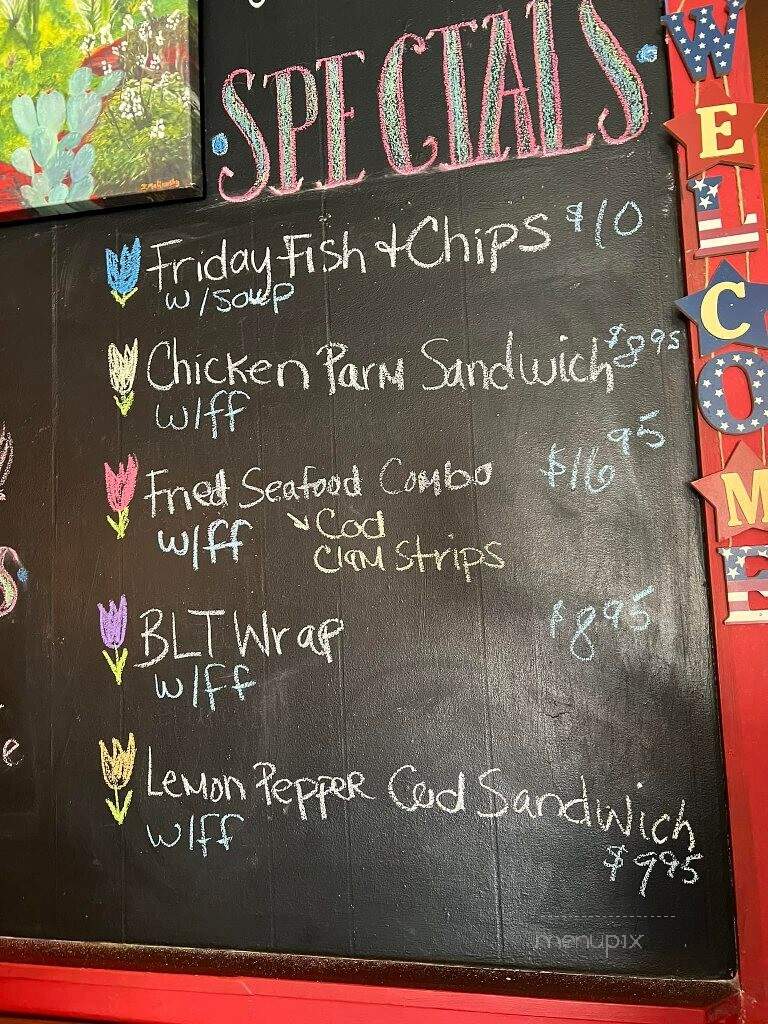 SPECIALS
Friday Fish + Chips $10
w/soup
Chicken Parm Sandwich $8.95
w/ff
Fried Seafood Combo $16.95
w/ff Cod
Clam Strips
BLT Wrap $8.95
w/ff
Lemon Pepper Cod Sandwich
w/ff
$9.95
WELCOME
menupix